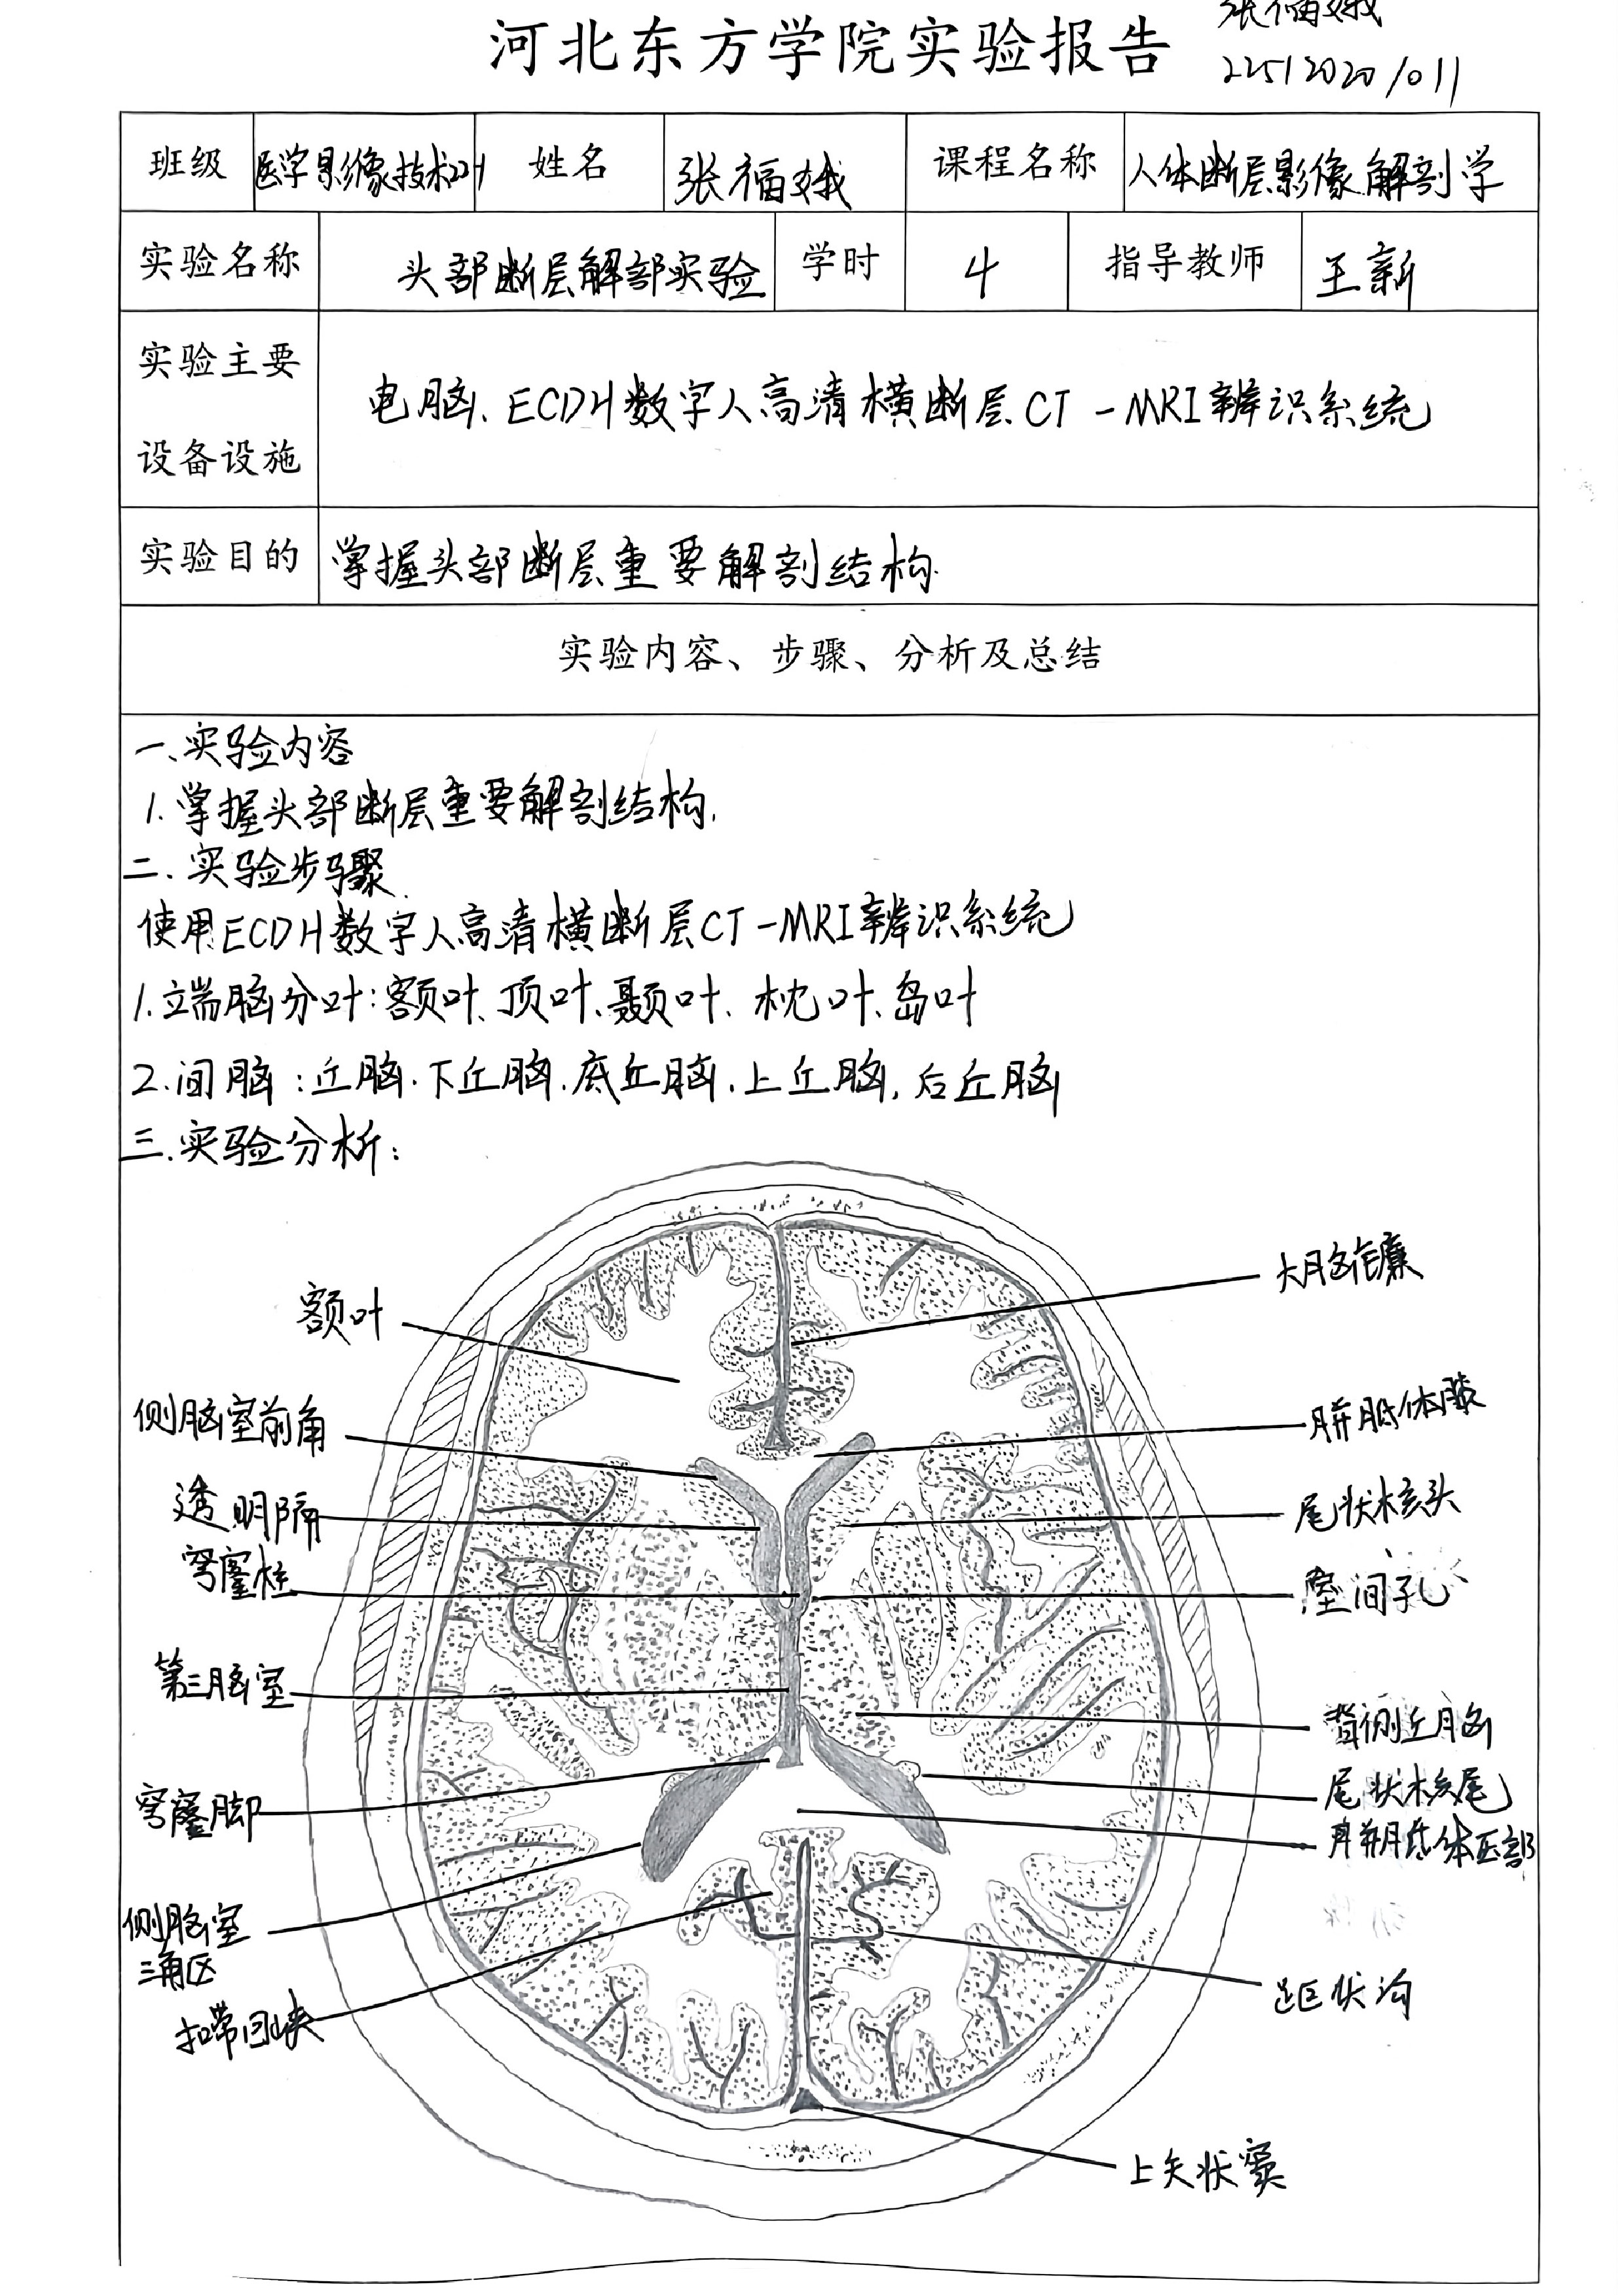 河北东方学院实验报告
张福娥
225120201011
班级 医学影像技术 姓名 张福娥 课程名称 人体断层影像解剖学
实验名称 头部断层解部实验 学时 4 指导教师 王新
实验主要
设备设施
电脑、ECDH数字人高清横断层CT-MRI辨识系统
实验目的 掌握头部断层重要解剖结构.
实验内容、步骤、分析及总结
一、实验内容
1.掌握头部断层重要解剖结构.
二.实验步骤
使用ECDH数字人高清横断层CT-MRI辨识系统
1.端脑分叶:额叶、顶叶、颞叶、枕叶、岛叶
2.间脑:丘脑.下丘脑.底丘脑.上丘脑.后丘脑
三.实验分析:
大脑镰
额叶
胼胝体膝
侧脑室前角
尾状核头
透明隔
穹窿柱
室间孔
第三脑室
背侧丘脑
尾状核尾
穹窿脚
胼胝体压部
侧脑室
三角区
距状沟
扣带回峡
上矢状窦